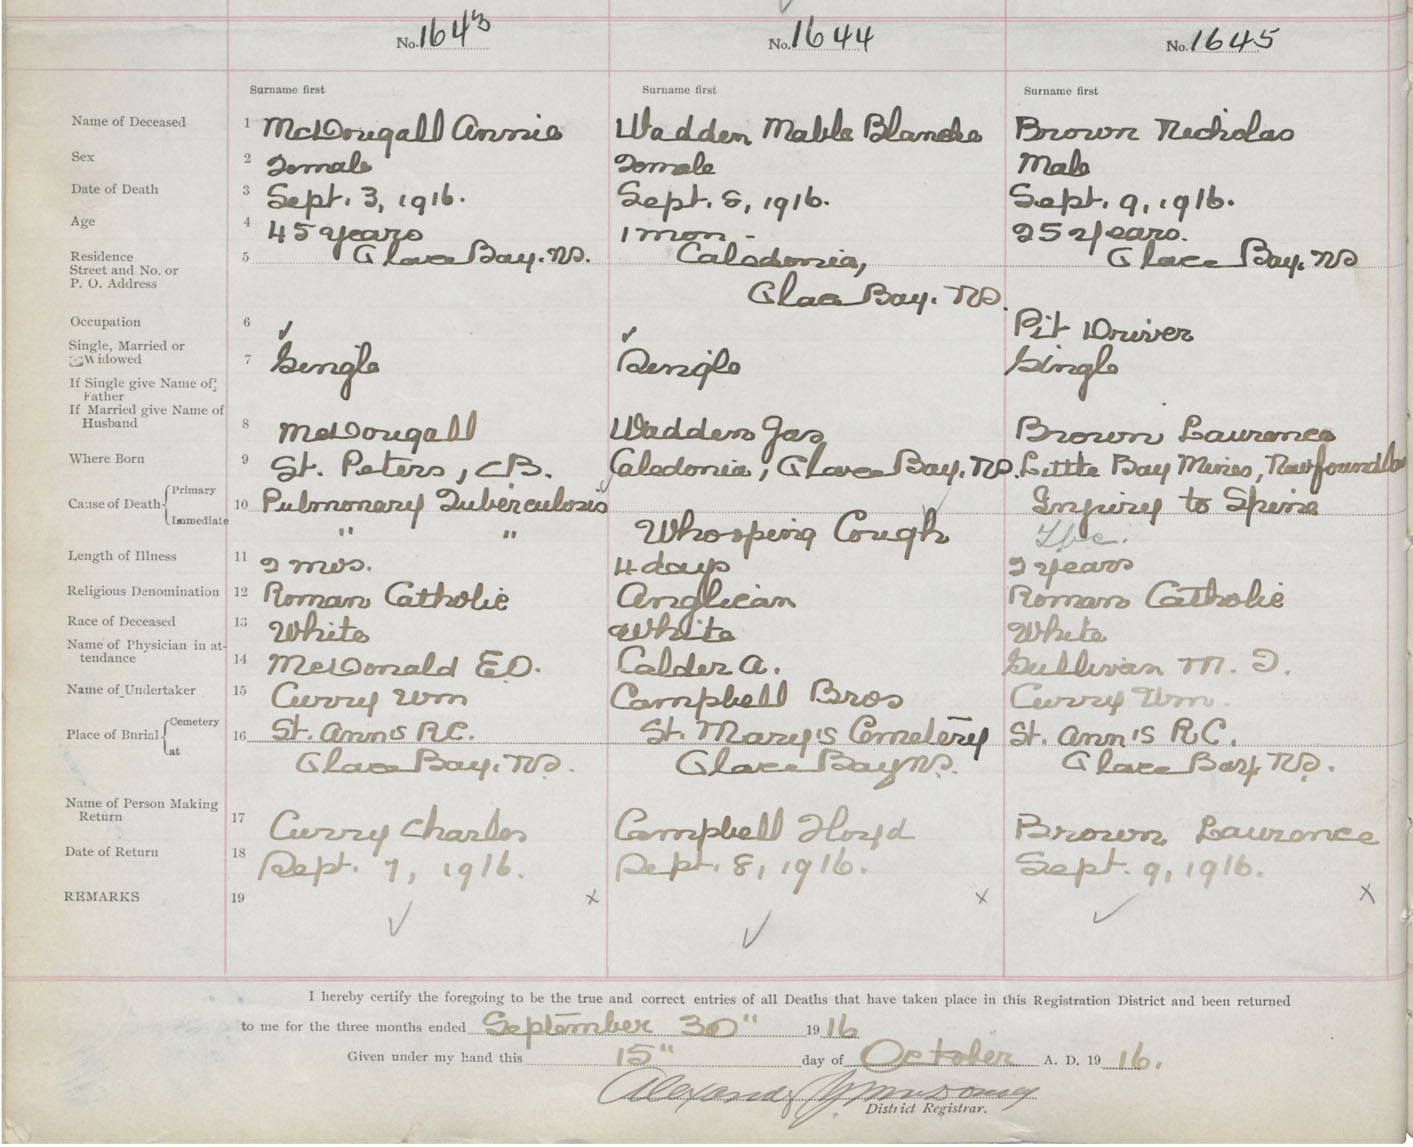 No. 1643 No. 1644 No. 1645
Surname first Surname first Surname first
Name of Deceased 1 McDougall Annie Wadden Mable Blanche Brown Nicholas
Sex 2 Female Female Male
Date of Death 3 Sept. 3, 1916. Sept. 8, 1916. Sept. 9, 1916.
Age 4 45 years 1 mon - 25 years.
Residence Street and No. or P. O. Address 5 Glace Bay. NS. Caledonia, Glace Bay, NS
Glace Bay. NS.
Occupation 6 ✓ ✓ Pit Driver
Single, Married or Widowed 7 Single Single Single
If Single give Name of Father
If Married give Name of Husband 8 McDougall Wadden Jas Brown Laurence
Where Born 9 St. Peters, CB. Caledonia, Glace Bay. NS. Little Bay Mines, Newfoundla
Cause of Death Primary 10 Pulmonary Tuberculosis Injury to Spine
Immediate " " Whooping Cough Tbc.
Length of Illness 11 2 mos. 4 days 2 years
Religious Denomination 12 Roman Catholic Anglican Roman Catholic
Race of Deceased 13 White White White
Name of Physician in attendance 14 McDonald E.O. Calder A. Sullivan M. T.
Name of Undertaker 15 Curry Wm Campbell Bros Curry Wm.
Place of Burial Cemetery 16 St. Ann's R.C. St. Mary's Cemetery St. Ann's R.C.
at Glace Bay. NS. Glace Bay NS. Glace Bay NS.
Name of Person Making Return 17 Curry Charles Campbell Floyd Brown Laurence
Date of Return 18 Sept. 7, 1916. Sept. 8, 1916. Sept. 9, 1916.
REMARKS 19 x x x
✓ ✓ ✓
I hereby certify the foregoing to be the true and correct entries of all Deaths that have taken place in this Registration District and been returned
to me for the three months ended September 30" 1916
Given under my hand this 15" day of October A. D. 1916.
Alexander
District Registrar.